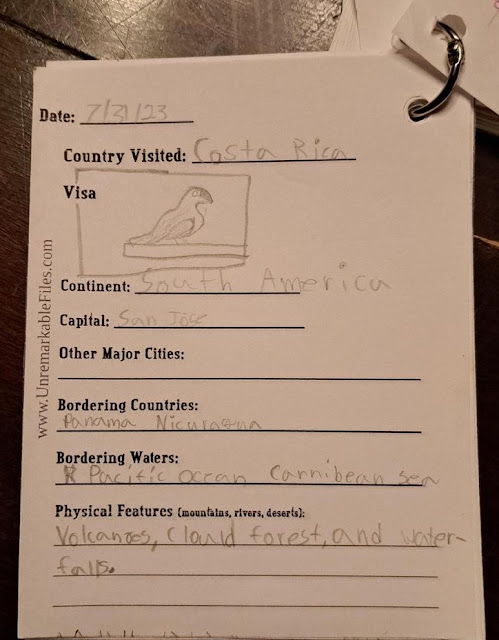 Date: 7/31/23
Country Visited: Costa Rica
Visa
Continent: South America
Capital: San Jose
Other Major Cities:
Bordering Countries:
Panama Nicuragua
Bordering Waters:
Pacific ocean Carnibean sea
Physical Features (mountains, rivers, deserts):
Volcanoes, Clould forest, and water-
falls.
www.UnremarkableFiles.com